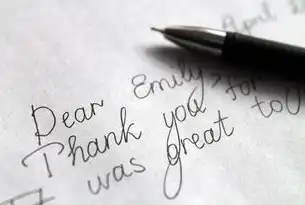 April
Dear Emily,
Thank you for
was great to